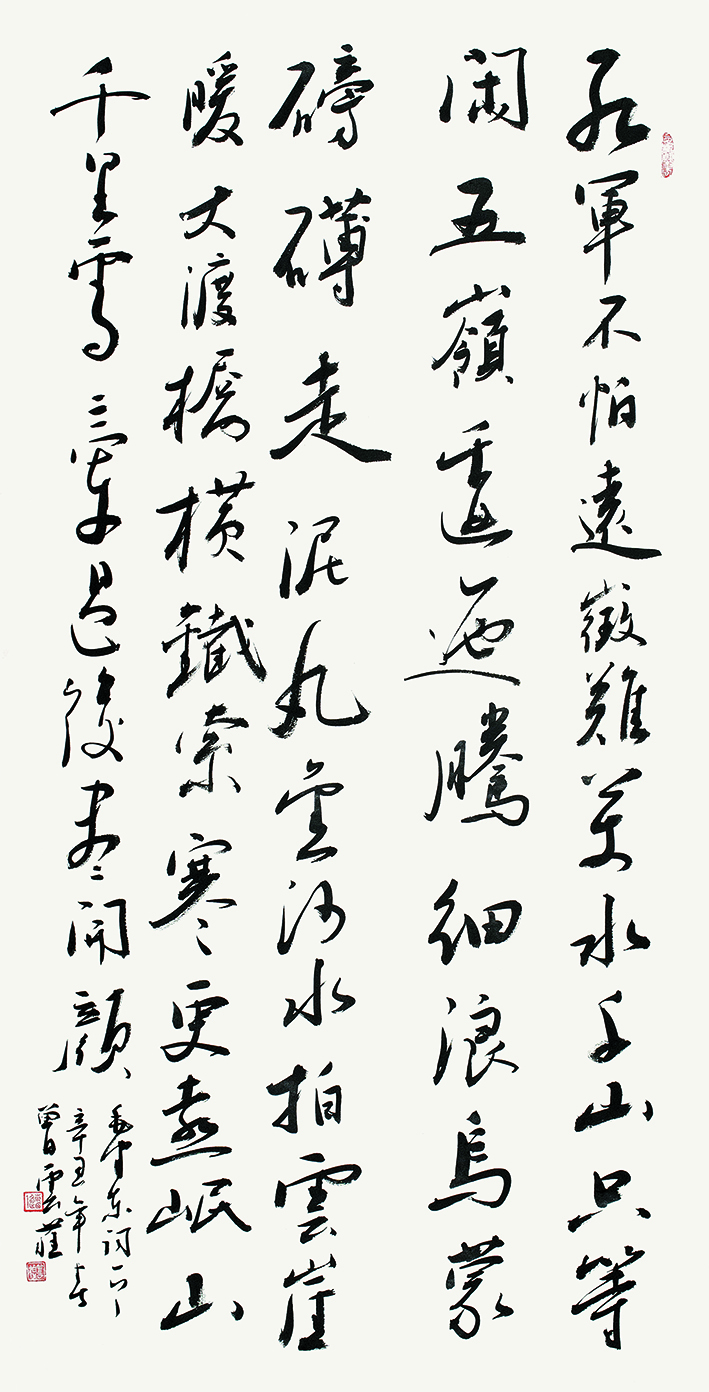 紅軍不怕遠徵難萬水千山只等
閑五嶺逶迤騰細浪烏蒙
磅礴走泥丸金沙水拍雲崖
暖大渡橋橫鐵索寒更喜岷山
千里雪三軍過後盡開顏
毛澤東詞一首
辛丑年
曾雲